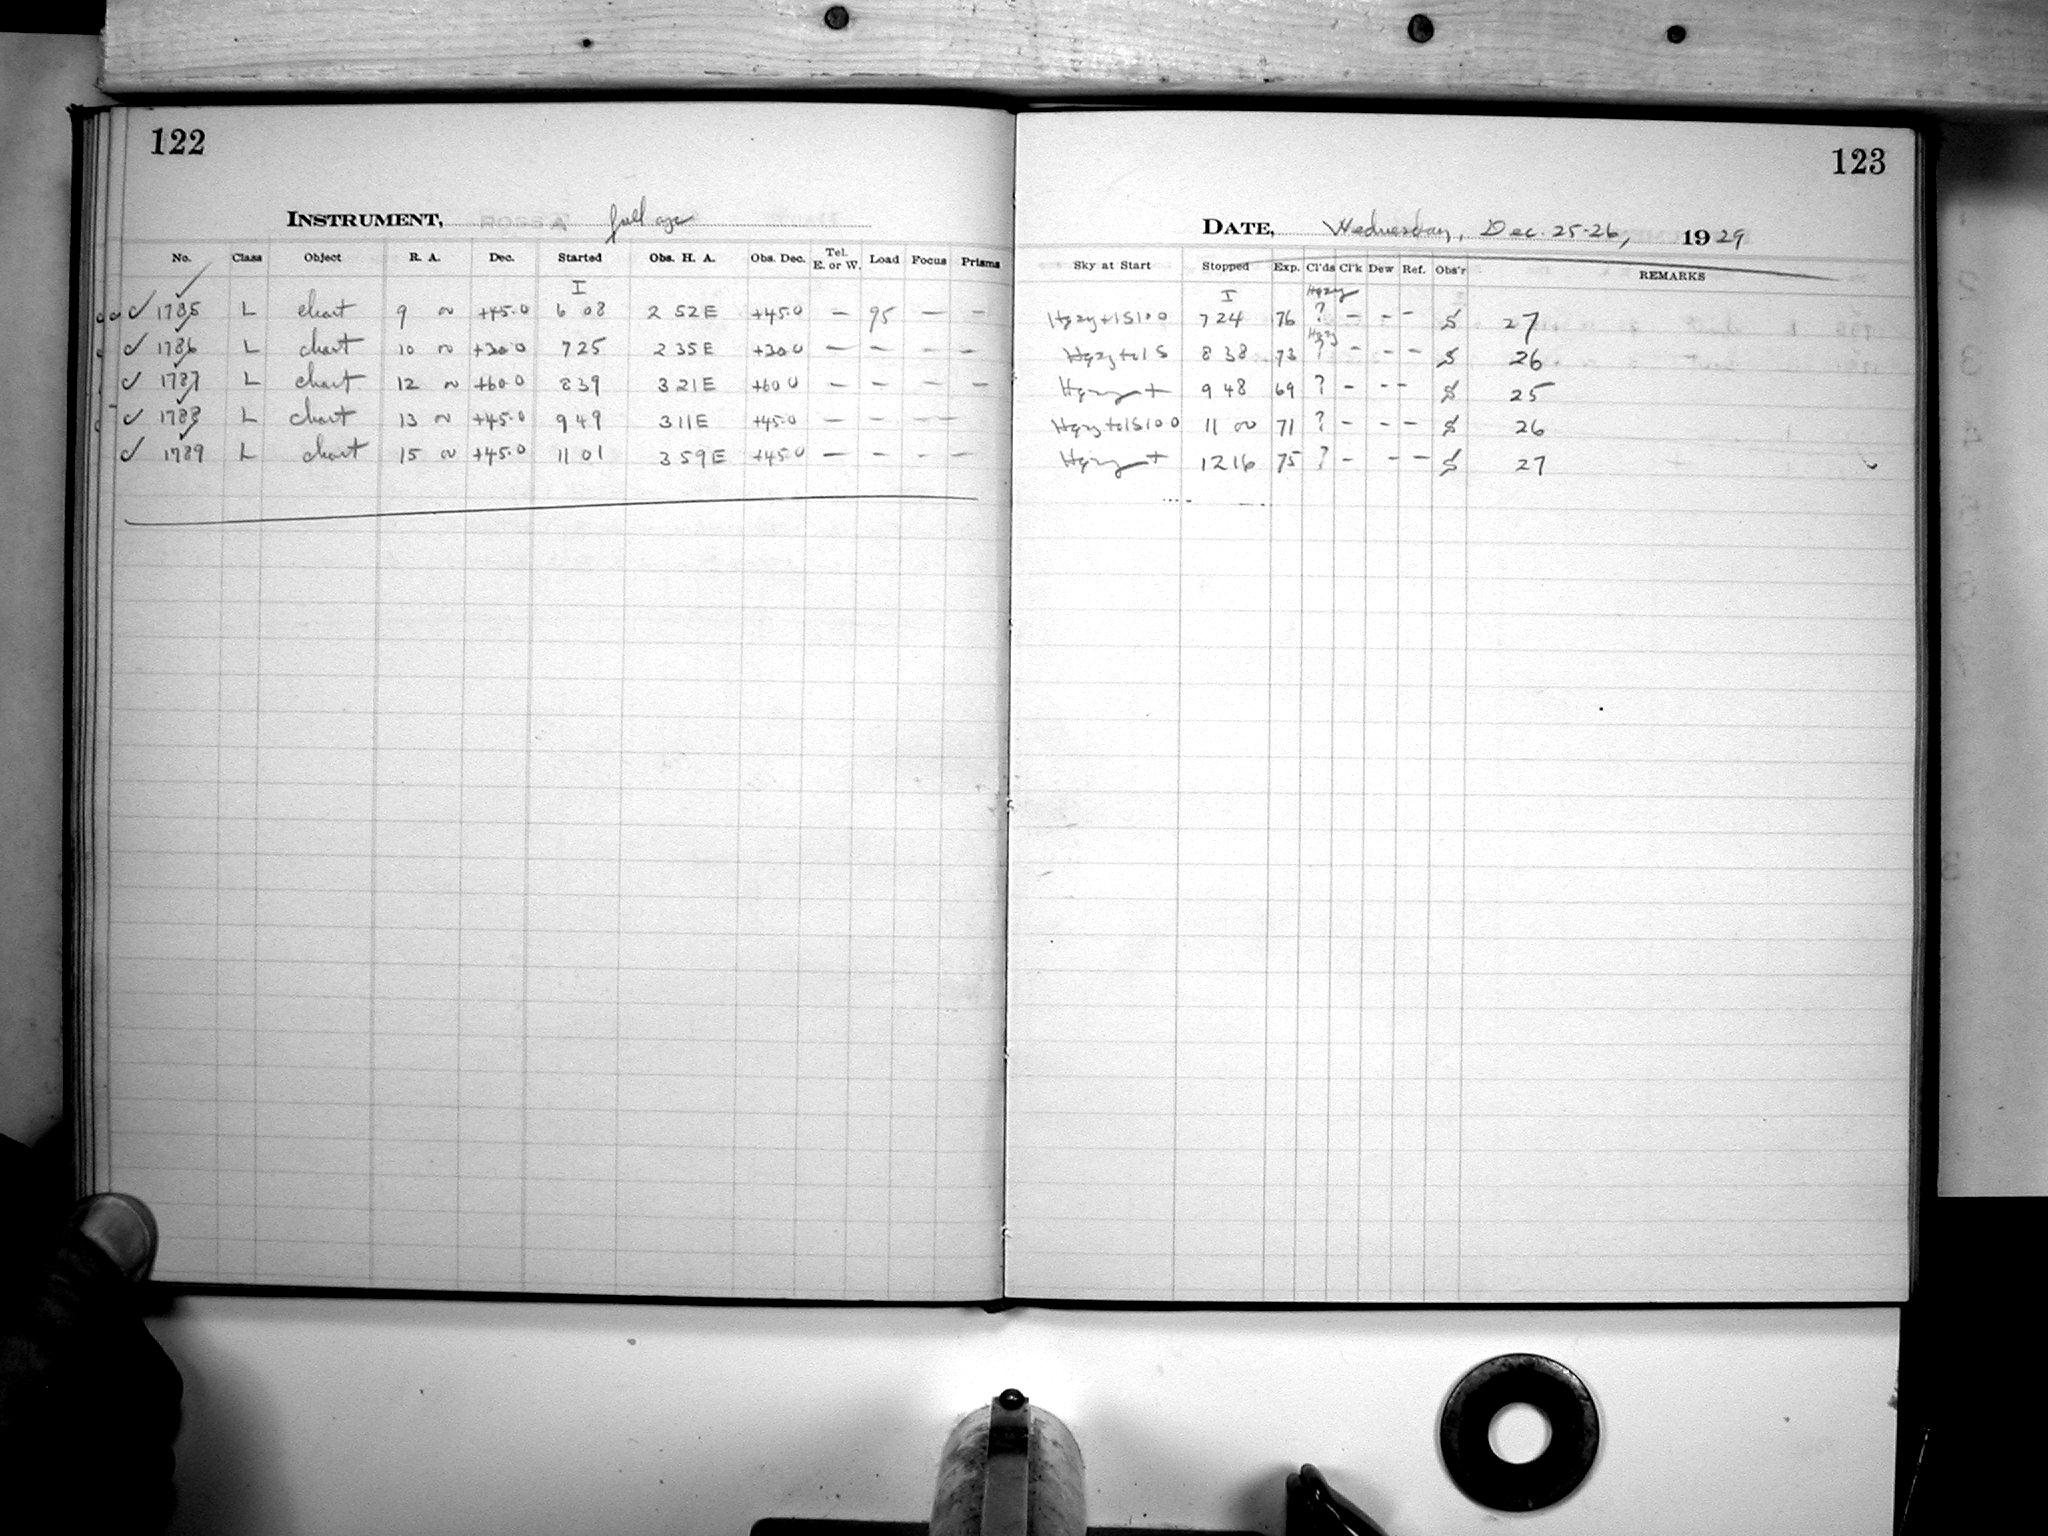 122
INSTRUMENT,
No. Class Object R. A. Dec. Started Obs. H. A. Obs. Dec. Tel. E. or W. Load Focus Prisms
I
✓ 1785 L chart 9 ~ +45.0 6 08 2 52 E +45.0 — 95 — —
✓ 1786 L chart 10 ~ +30.0 7 25 2 35 E +30.0 — — — —
✓ 1787 L chart 12 ~ +60.0 8 39 3 21 E +60.0 — — — —
✓ 1788 L chart 13 ~ +45.0 9 49 3 11 E +45.0 — — — —
✓ 1789 L chart 15 ~ +45.0 11 01 3 59 E +45.0 — — - —
123
DATE, Wednesday, Dec. 25-26, 1929
Sky at Start Stopped Exp. Cl'ds Cl'k Dew Ref. Obs'r REMARKS
I Hazy
7 24 76 ? — - - 27
Hazy
8 38 73 ? - - - 26
Hazy + 9 48 69 ? - - - 25
11 ~ 71 ? - - - 26
Hazy + 12 16 75 ? - - - 27